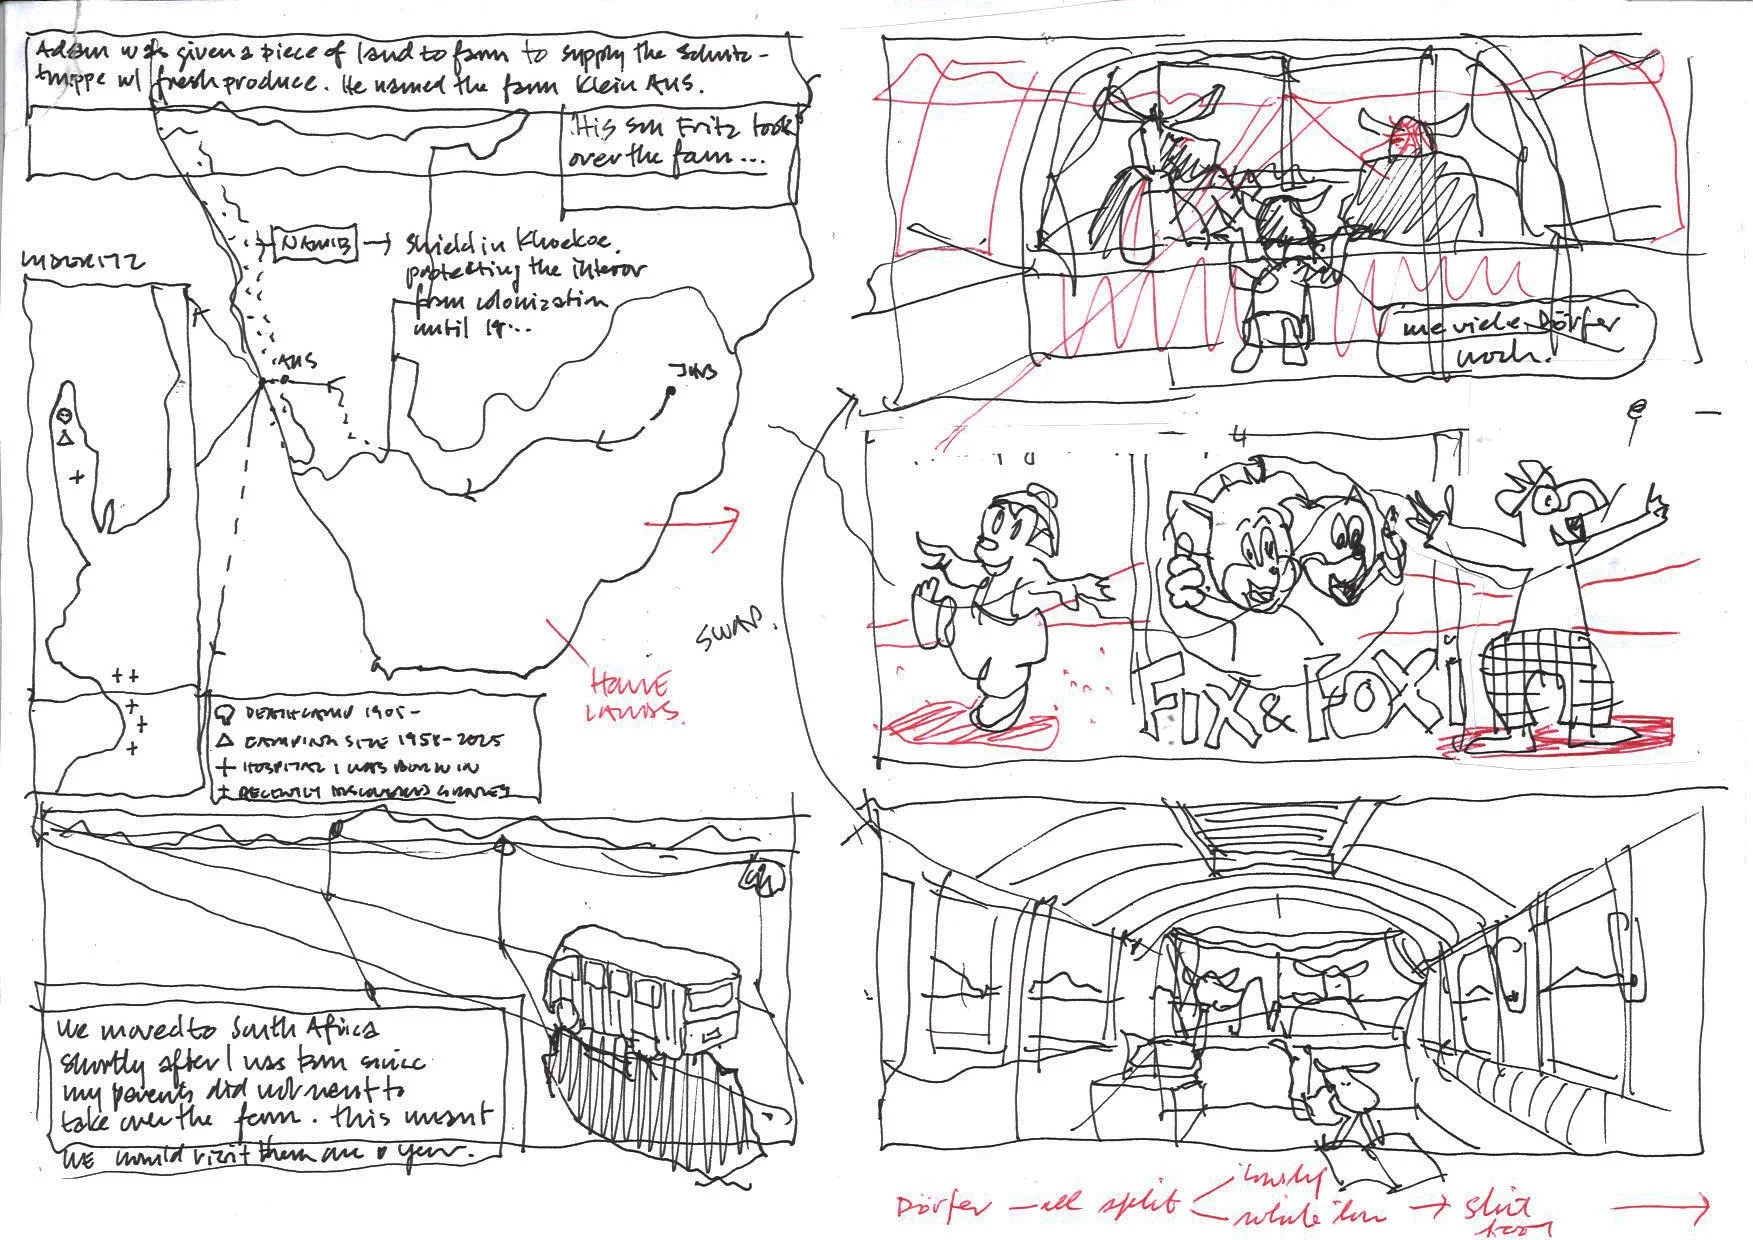 Adam was given a piece of land to farm to supply the Schutz-
truppe w/ fresh produce. He named the farm Klein Aus.
His son Fritz took
over the farm...
NAMIB → shield in Khoekoe.
protecting the interior
from colonization
until 19...
LÜDERITZ
AUS
JNB
HOME
LANDS.
DEATHCAMP 1905-
CAMPING SITE 1958-2025
HOSPITAL I WAS BORN IN
RECENTLY DISCOVERED GRAVES
We moved to South Africa
shortly after I was born since
my parents did not want to
take over the farm. This meant
WE would visit them once a year.
SWAP.
wie viele Dörfer
noch.
FIX & FOXI
Dörfer — all split
→